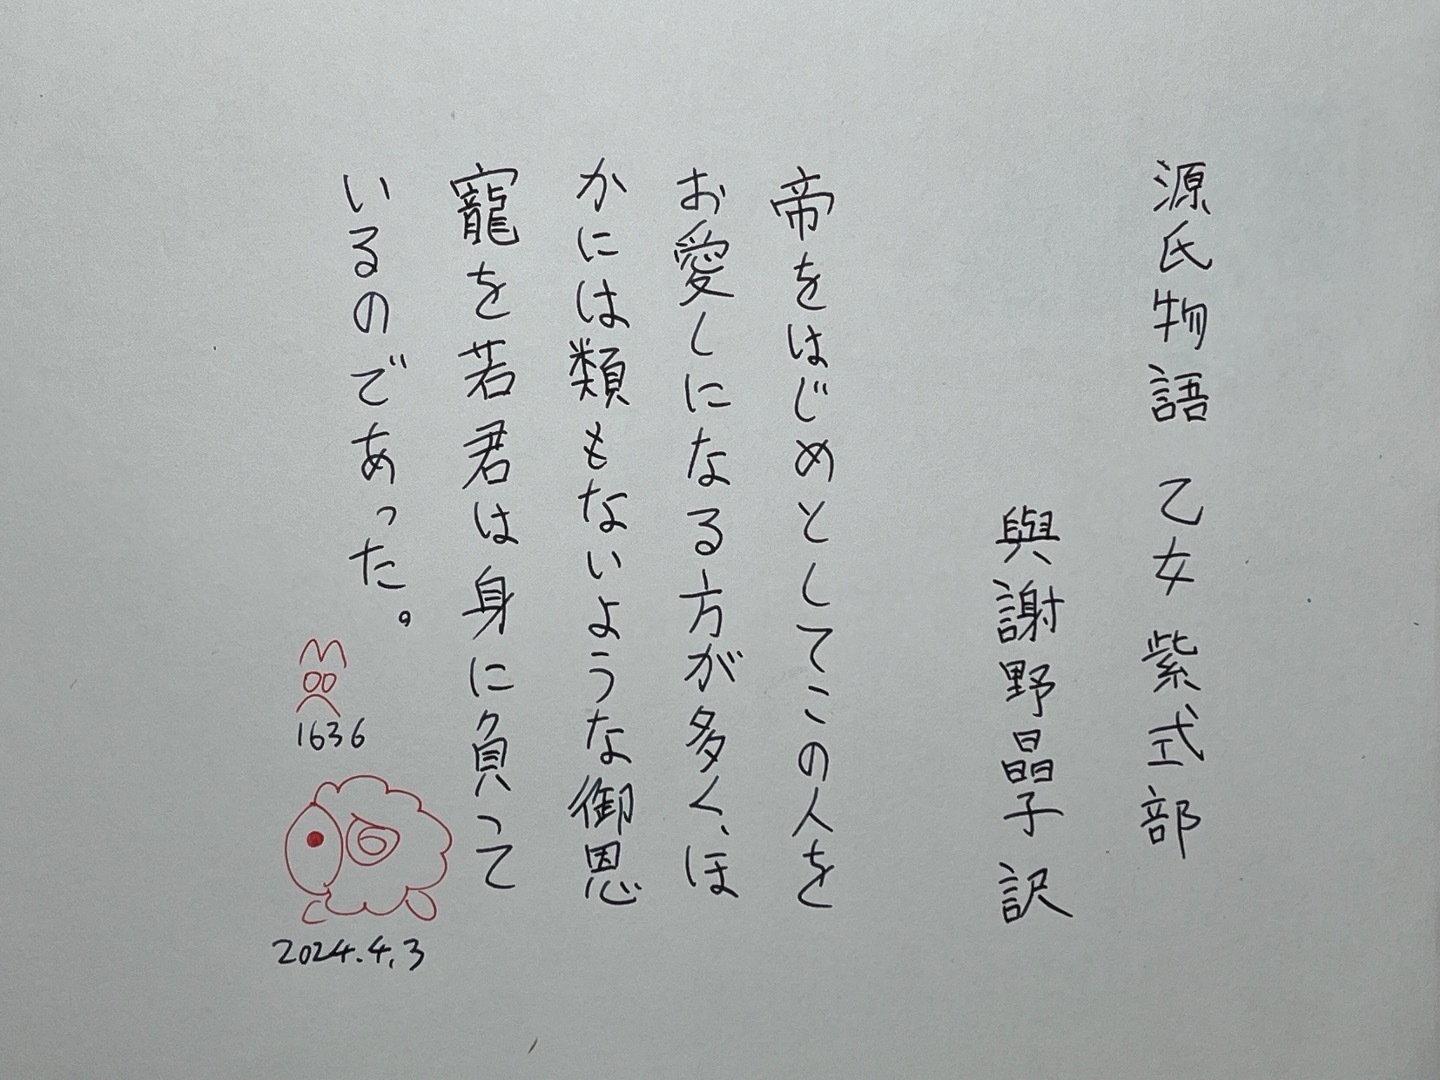 源氏物語 乙女 紫式部
與謝野晶子訳
帝をはじめとしてこの人を
お愛しになる方が多く、ほ
かには類もないような御恩
寵を若君は身に負って
いるのであった。
1636
2024.4.3